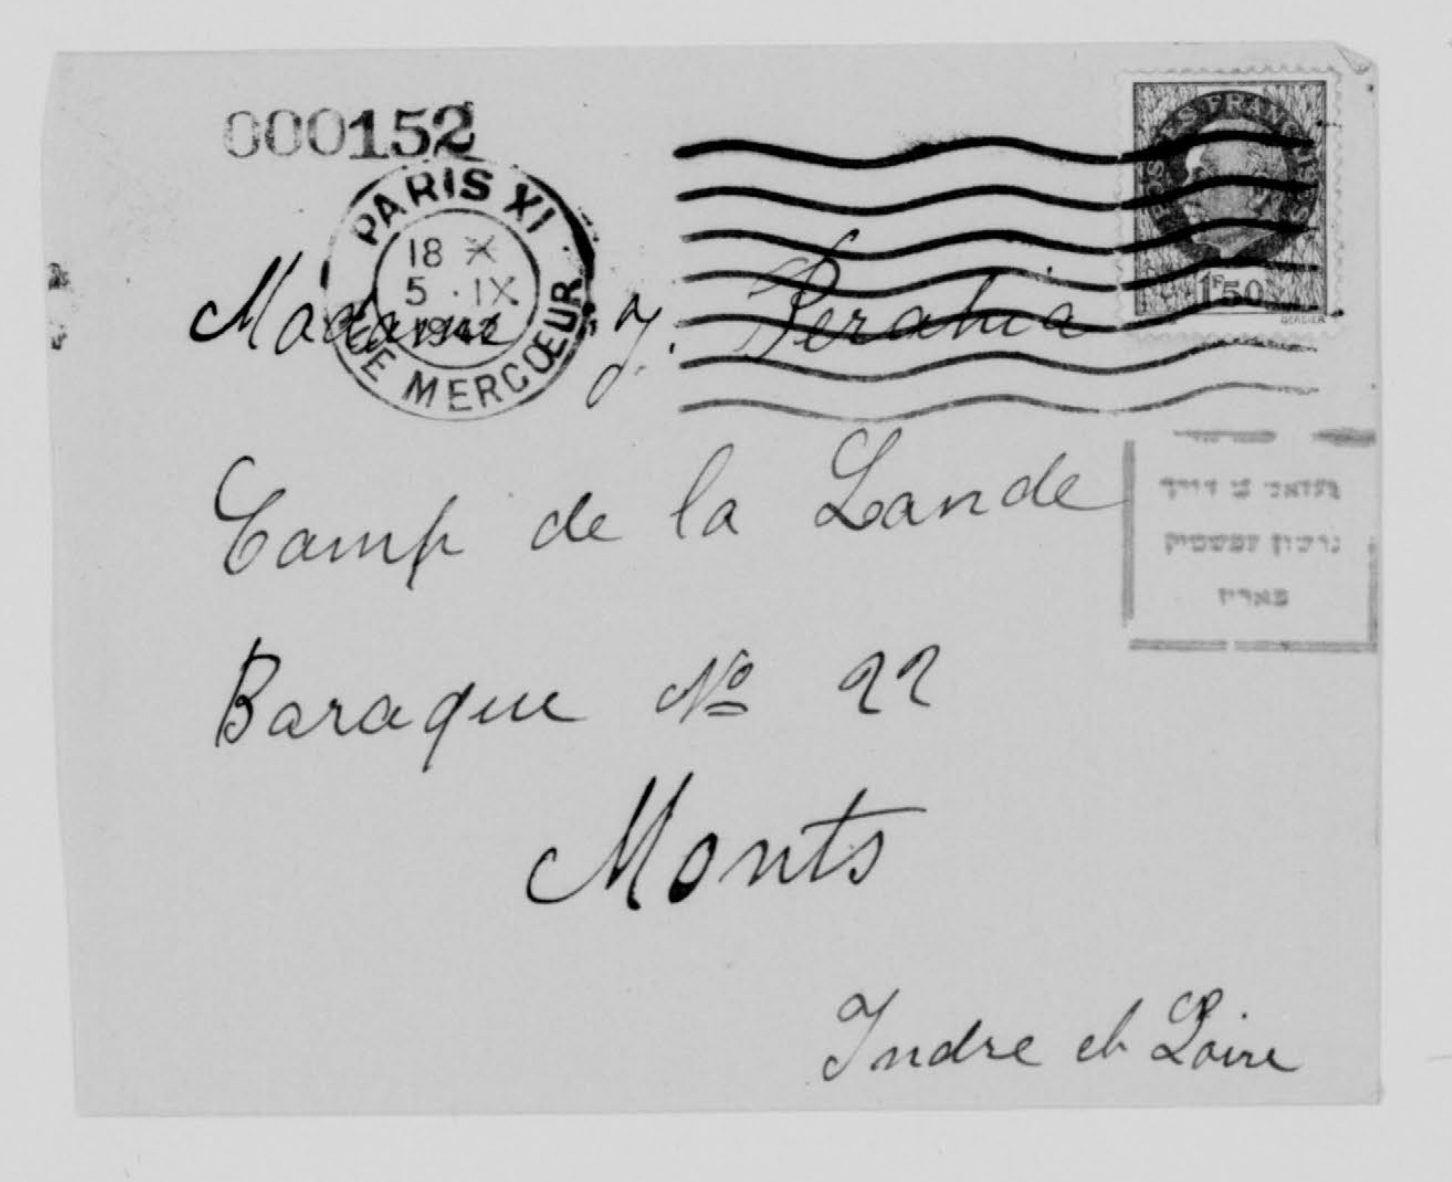 000152
PARIS XI
18 X
5 · IX
1942
RUE MERCŒUR
POSTES FRANÇAISES
1F50
Madame J. Perahia
Camp de la Lande
געזאמלט דורך
גרשון עפשטיין
פאריז
Baraque No 22
Monts
Indre et Loire